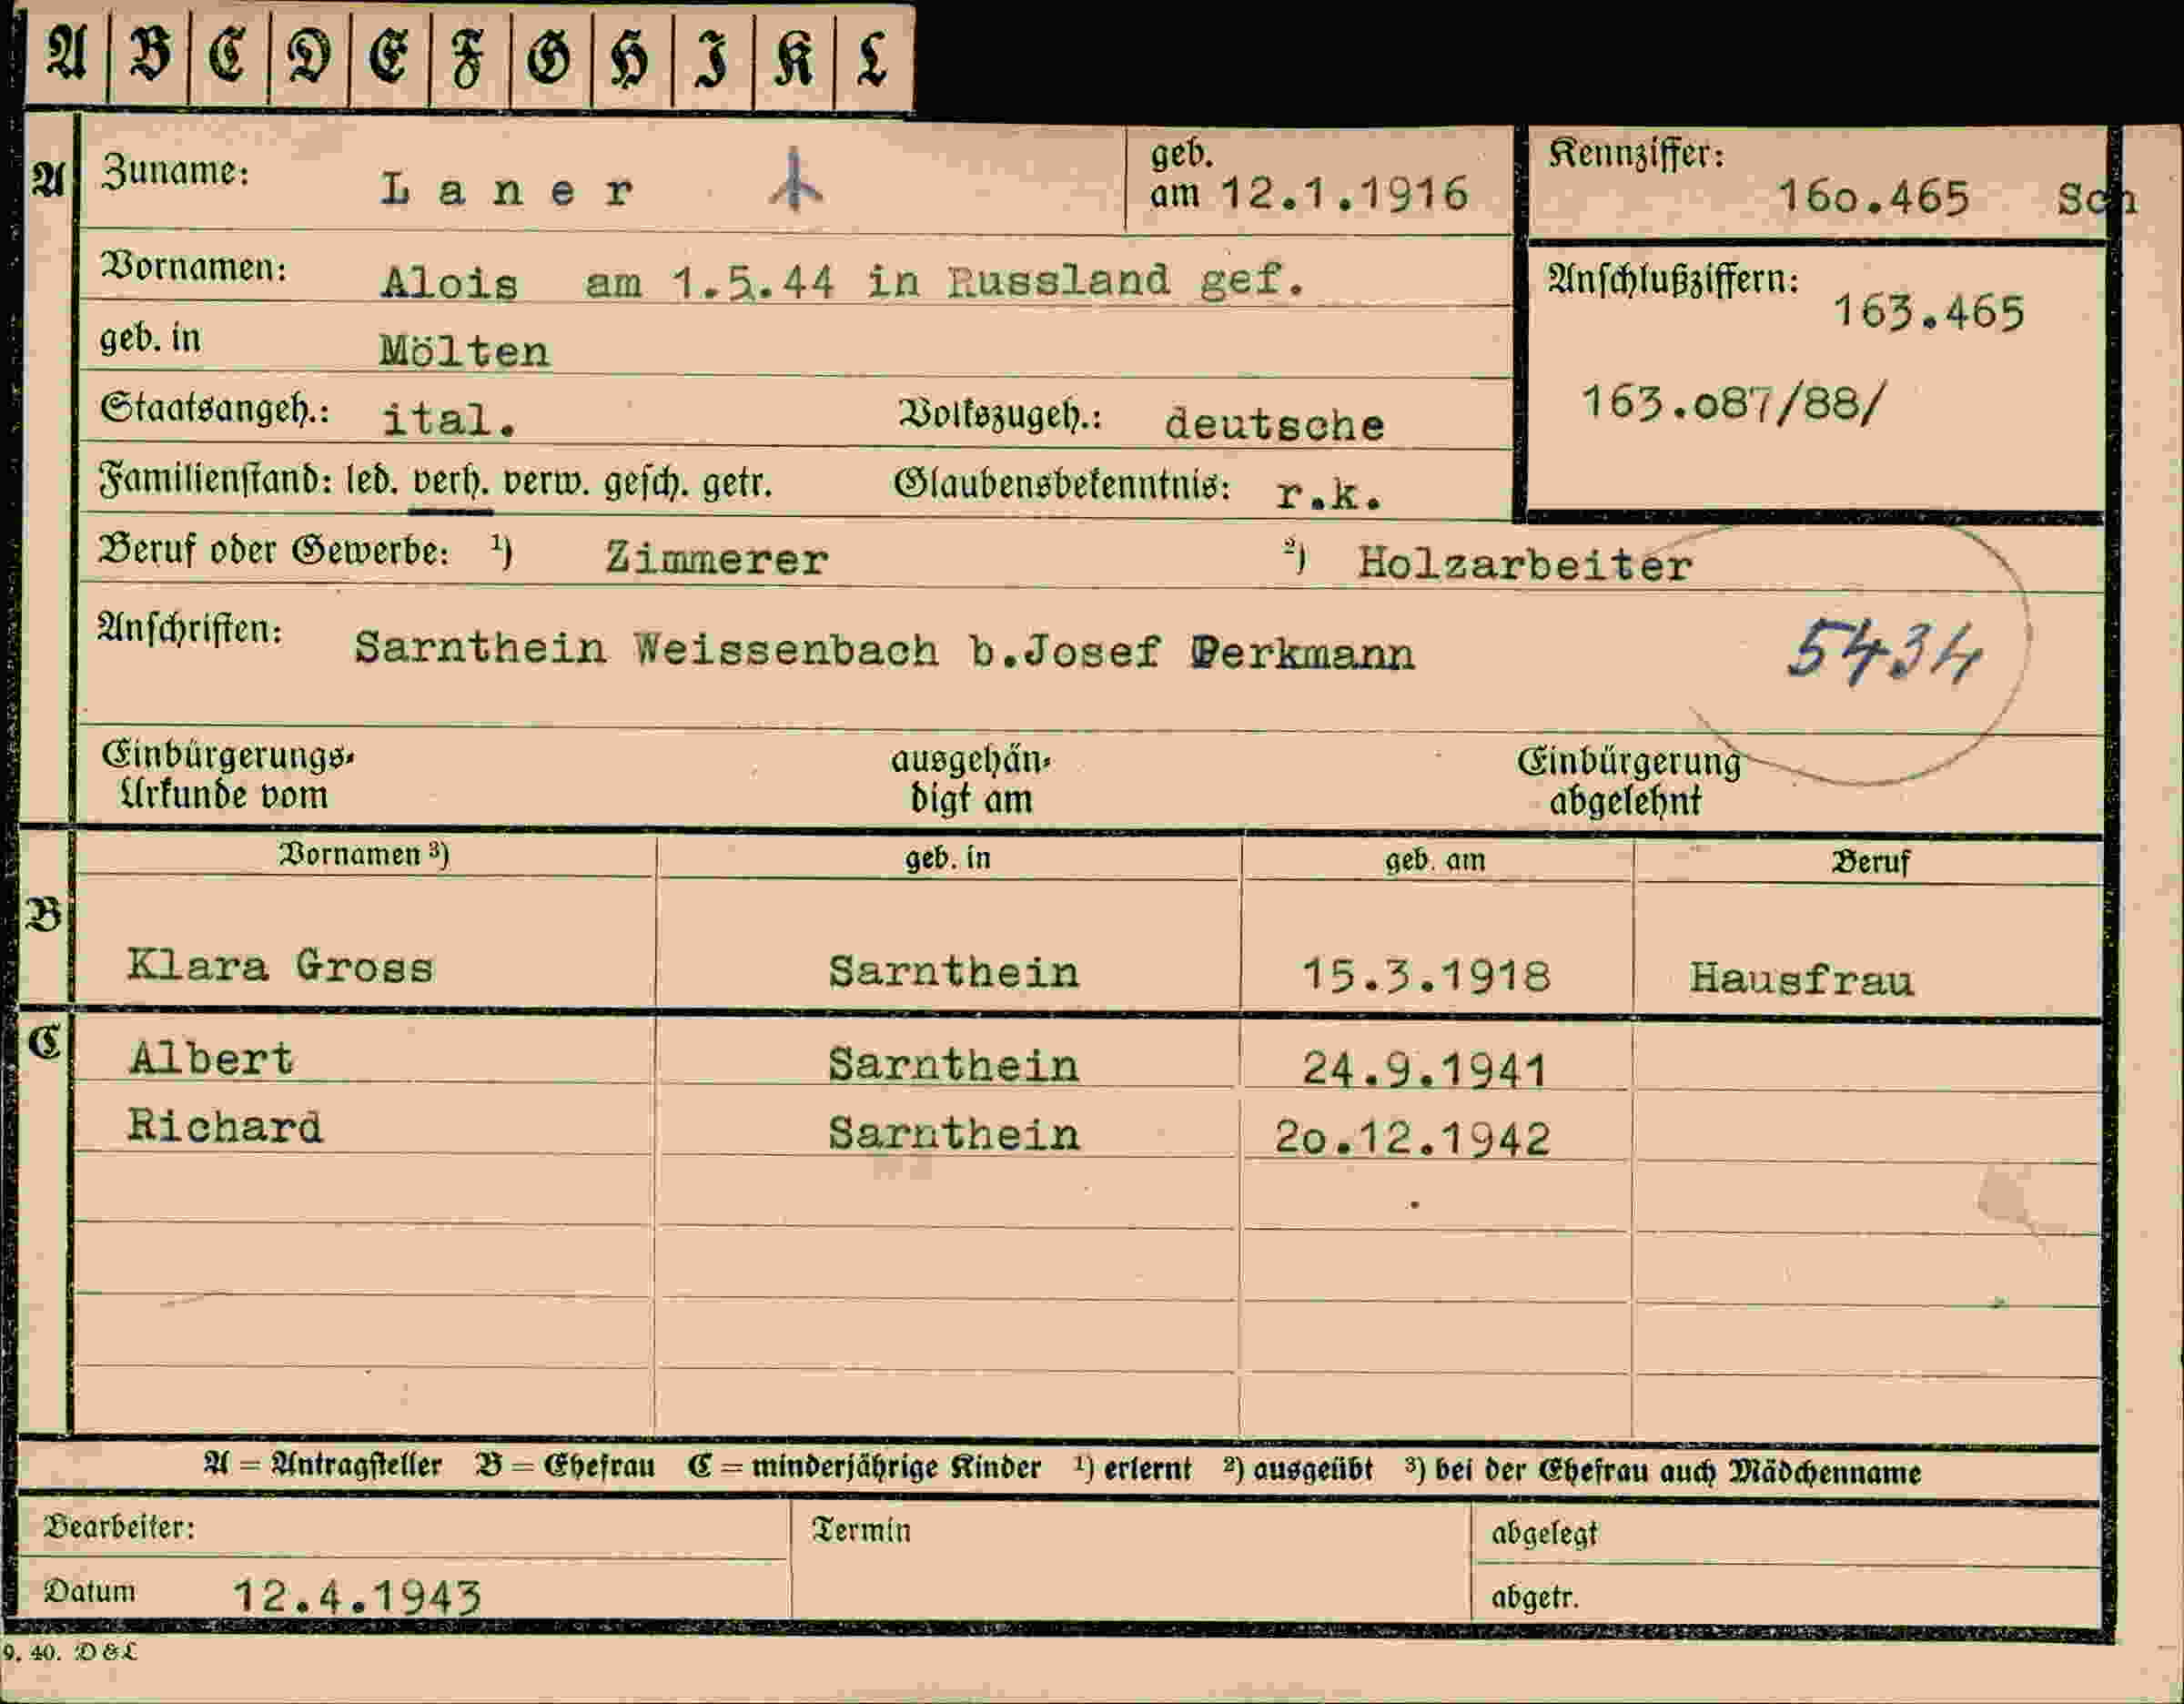 A B C D E F G H I K L
A Zuname: Laner geb. am 12.1.1916 Kennziffer: 160.465 Sch
Vornamen: Alois am 1.5.44 in Russland gef. Anschlußziffern: 163.465
geb. in Mölten
163.087/88/
Staatsangeh.: ital. Volkszugeh.: deutsche
Familienstand: led. verh. verw. gesch. getr. Glaubensbekenntnis: r.k.
Beruf oder Gewerbe: ¹) Zimmerer ²) Holzarbeiter
Anschriften: Sarnthein Weissenbach b.Josef Perkmann 5434
Einbürgerungs- ausgehän- Einbürgerung
Urkunde vom digt am abgelehnt
Vornamen ³) geb. in geb. am Beruf
B
Klara Gross Sarnthein 15.3.1918 Hausfrau
C Albert Sarnthein 24.9.1941
Richard Sarnthein 20.12.1942
A = Antragsteller B = Ehefrau C = minderjährige Kinder ¹) erlernt ²) ausgeübt ³) bei der Ehefrau auch Mädchenname
Bearbeiter: Termin abgelegt
Datum 12.4.1943 abgetr.
9. 40. D & L